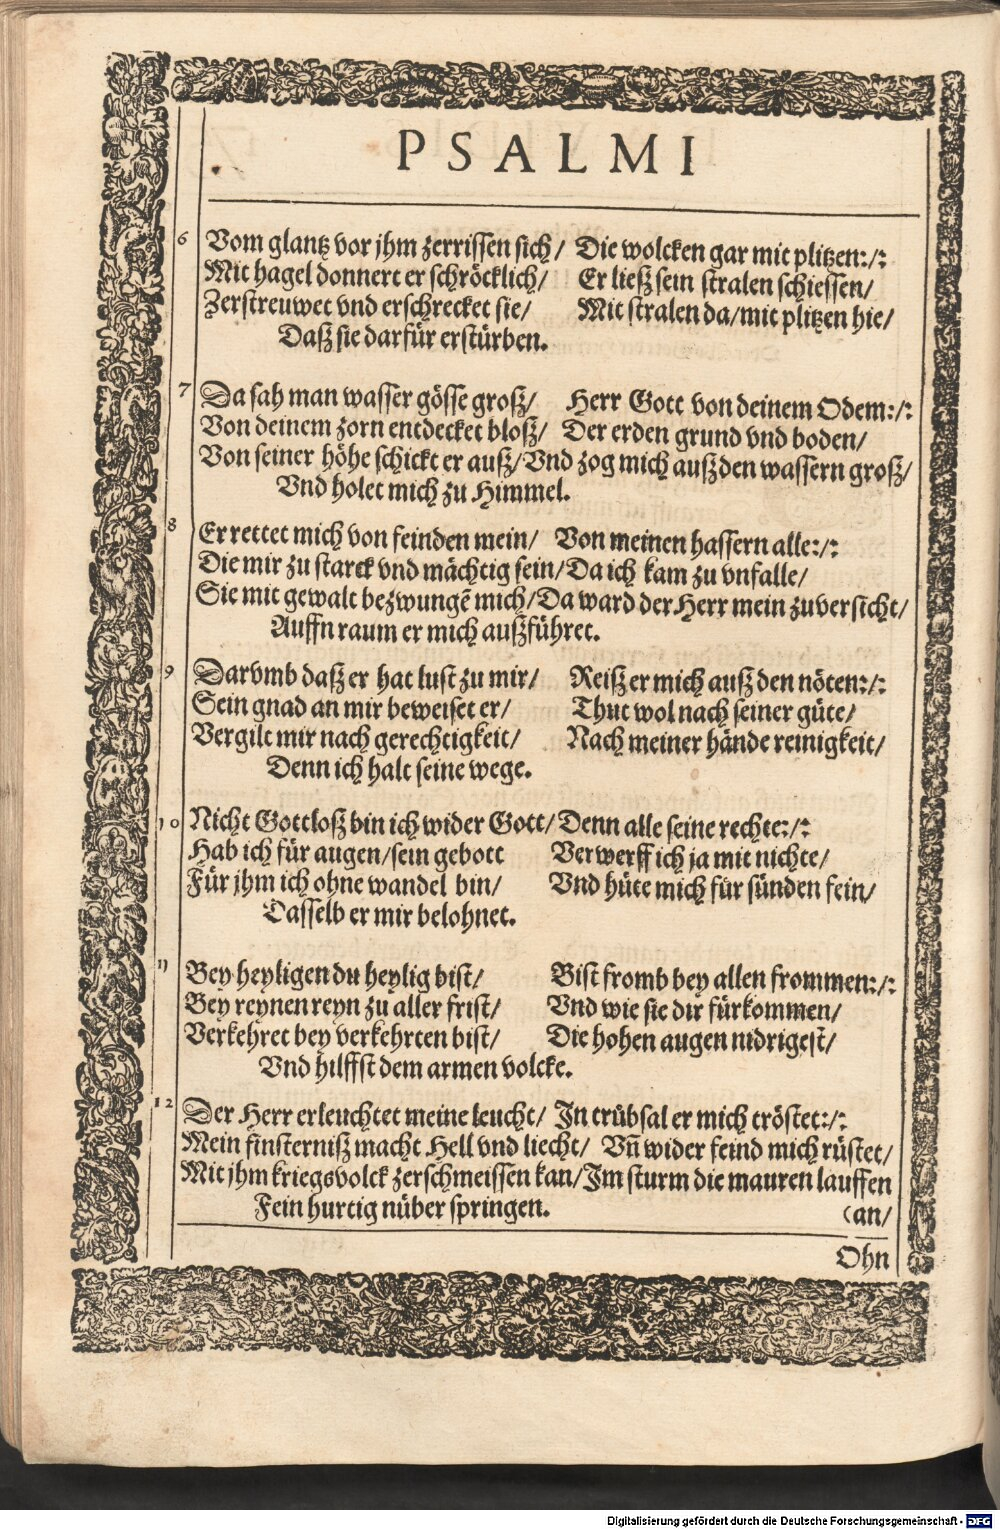 PSALMI
6 Vom glantz vor jhm zerrissen sich/ Die wolcken gar mit plitzen:/:
Mit hagel donnert er schröcklich/ Er ließ sein stralen schiessen/
Zerstreuwet vnd erschrecket sie/ Mit stralen da/mit plitzen hie/
Daß sie darfür erstürben.
7 Da sah man wasser gösse groß/ Herr Gott von deinem Odem:/:
Von deinem zorn entdecket bloß/ Der erden grund vnd boden/
Von seiner höhe schickt er auß/Vnd zog mich auß den wassern groß/
Vnd holet mich zu Himmel.
8 Er rettet mich von feinden mein/ Von meinen hassern alle:/:
Die mir zu starck vnd mächtig sein/Da ich kam zu vnfalle/
Sie mit gewalt bezwungẽ mich/Da ward der Herr mein zuversicht/
Auffn raum er mich außführet.
9 Darvmb daß er hat lust zu mir/ Reiß er mich auß den nöten:/:
Sein gnad an mir beweiset er/ Thut wol nach seiner güte/
Vergilt mir nach gerechtigkeit/ Nach meiner hände reinigkeit/
Denn ich halt seine wege.
10 Nicht Gottloß bin ich wider Gott/ Denn alle seine rechte:/:
Hab ich für augen/sein gebott Verwerff ich ja mit nichte/
Für jhm ich ohne wandel bin/ Vnd hüte mich für sünden fein/
Dasselb er mir belohnet.
11 Bey heyligen du heylig bist/ Bist fromb bey allen frommen:/:
Bey reynen reyn zu aller frist/ Vnd wie sie dir fürkommen/
Verkehret bey verkehrten bist/ Die hohen augen nidrigest/
Vnd hilffst dem armen volcke.
12 Der Herr erleuchtet meine leucht/ In trübsal er mich tröstet:/:
Mein finsterniß macht Hell vnd liecht/ Vñ wider feind mich rüstet/
Mit jhm kriegsvolck zerschmeissen kan/Im sturm die mauren lauffen
Fein hurtig nüber springen. (an/
Ohn
Digitalisierung gefördert durch die Deutsche Forschungsgemeinschaft - DFG